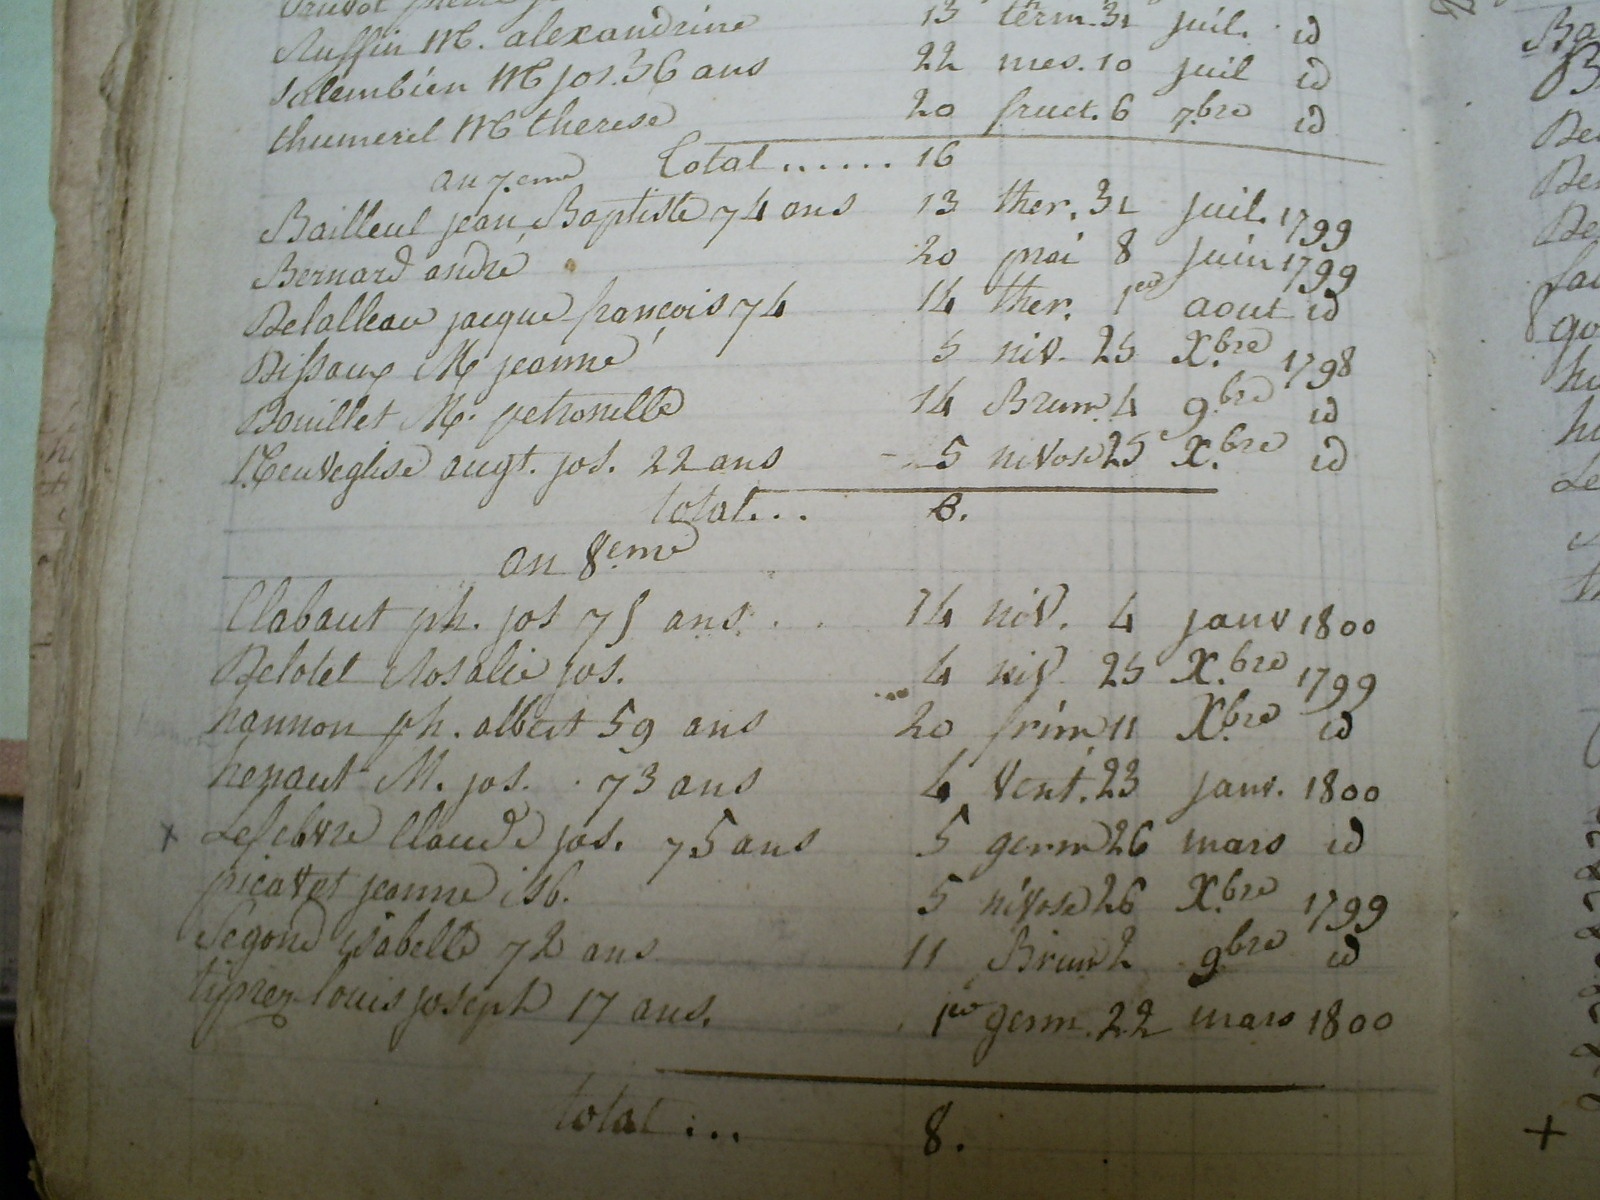 Ruffin M. alexandrine 13 term. 31 juil. id
salembien M jos. 36 ans 22 mes. 10 juil id
thumerel M therese 20 fruct. 6 7.bre id
an 7.eme Total ...... 16
Bailleul jean Baptiste 74 ans 13 ther. 31 juil. 1799
Bernard andré 20 prai 8 juin 1799
Delalleau jacque françois 74 14 ther. 1er aout id
Dissaux M jeanne 5 niv. 25 X.bre 1798
Douillet M. petronille 14 Brum. 4 9.bre id
Neuveglise augt. jos. 22 ans 5 nivose 25 X.bre id
total... 6.
an 8eme
Clabaut ph. jos 75 ans . . 14 niv. 4 janv 1800
Delotel Rosalie jos. 4 niv 25 X.bre 1799
hannon ph. albert 59 ans 20 frim 11 X.bre id
henaut M. jos. . 73 ans 4 vent. 23 janv. 1800
x Lefebvre Claude jos. 75 ans 5 germ 26 mars id
picavet jeanne isb. 5 nivose 26 X.bre 1799
Segond isabelle 72 ans 11 Brum 2 9bre id
tiprez louis joseph 17 ans. 1er germ. 22 mars 1800
total ... 8.